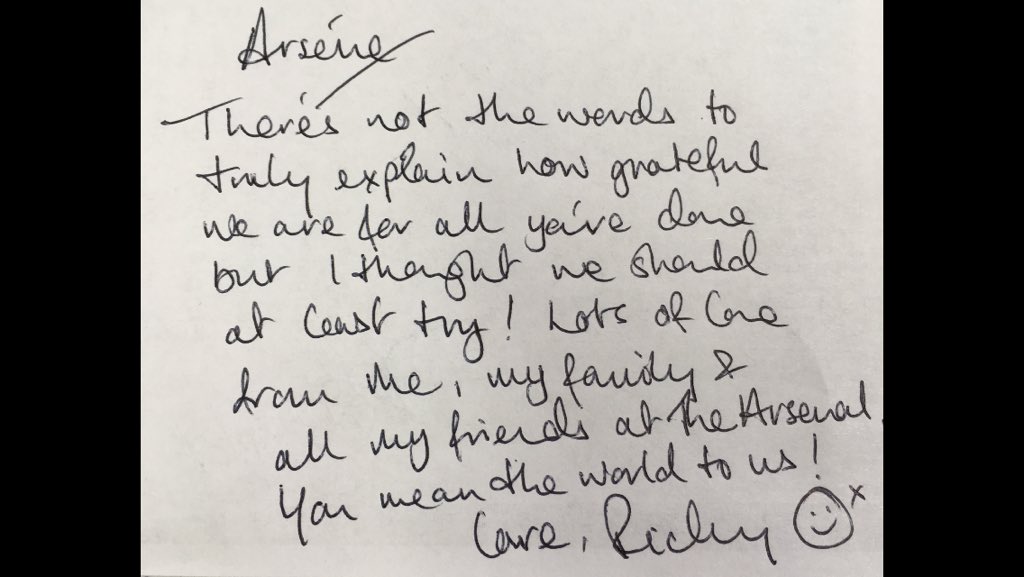 Arséne
There's not the words to
truly explain how grateful
we are for all you've done
but I thought we should
at least try! Lots of love
from me, my family &
all my friends at the Arsenal.
You mean the world to us!
Love, Ricky ☺ x